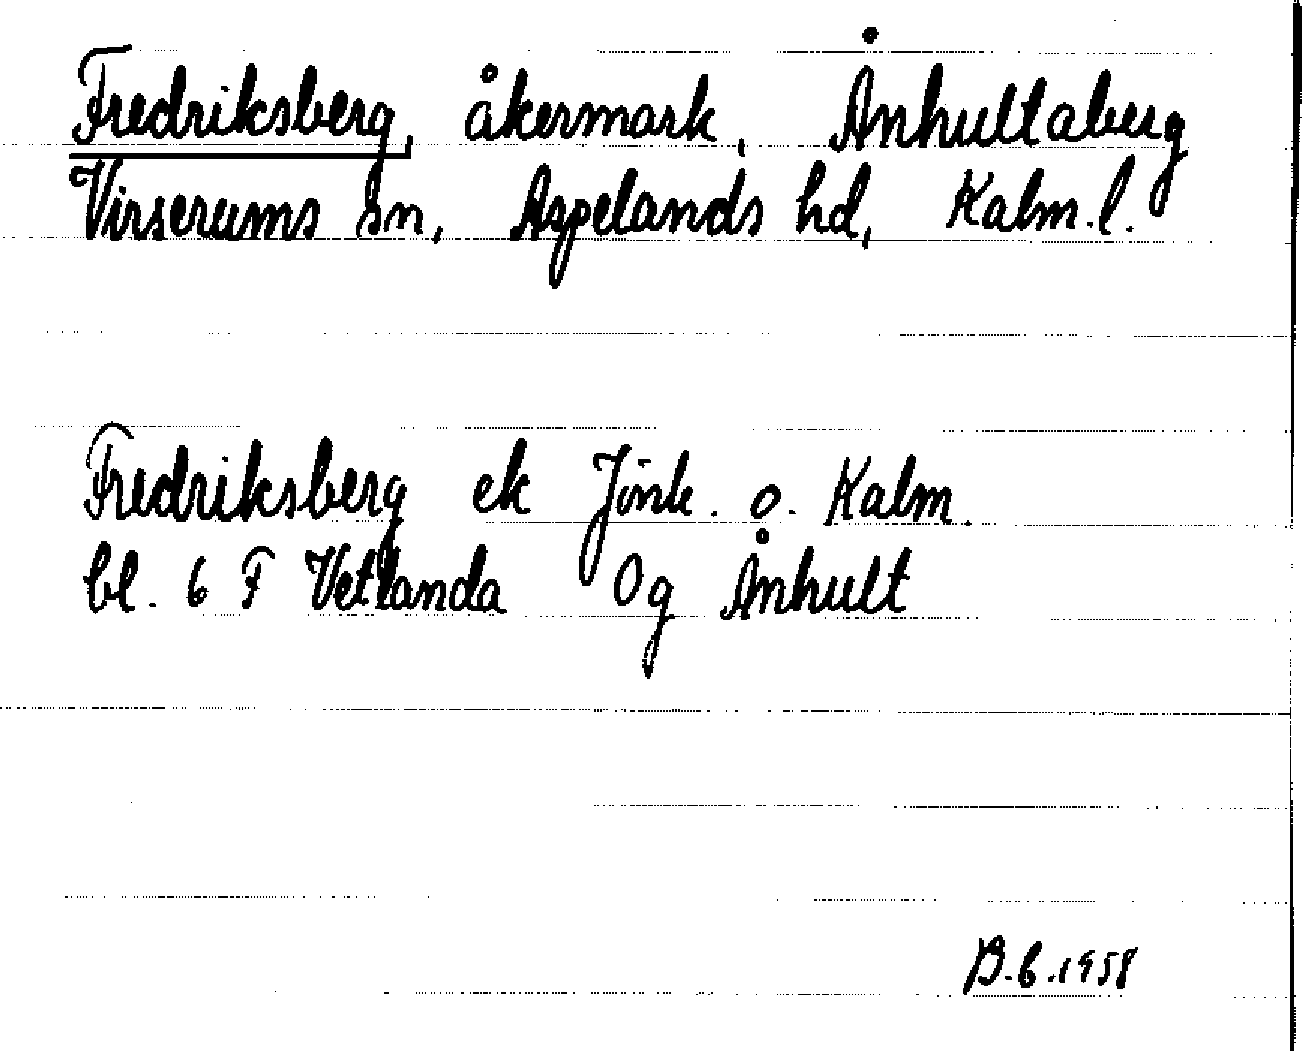 Fredriksberg, åkermark, Ånhultaberg
Virserums sn, Aspelands hd, Kalm.l.
Fredriksberg ek Jönk. o. Kalm.
bl. 6 F Vetlanda 0g Ånhult
B.6.1958